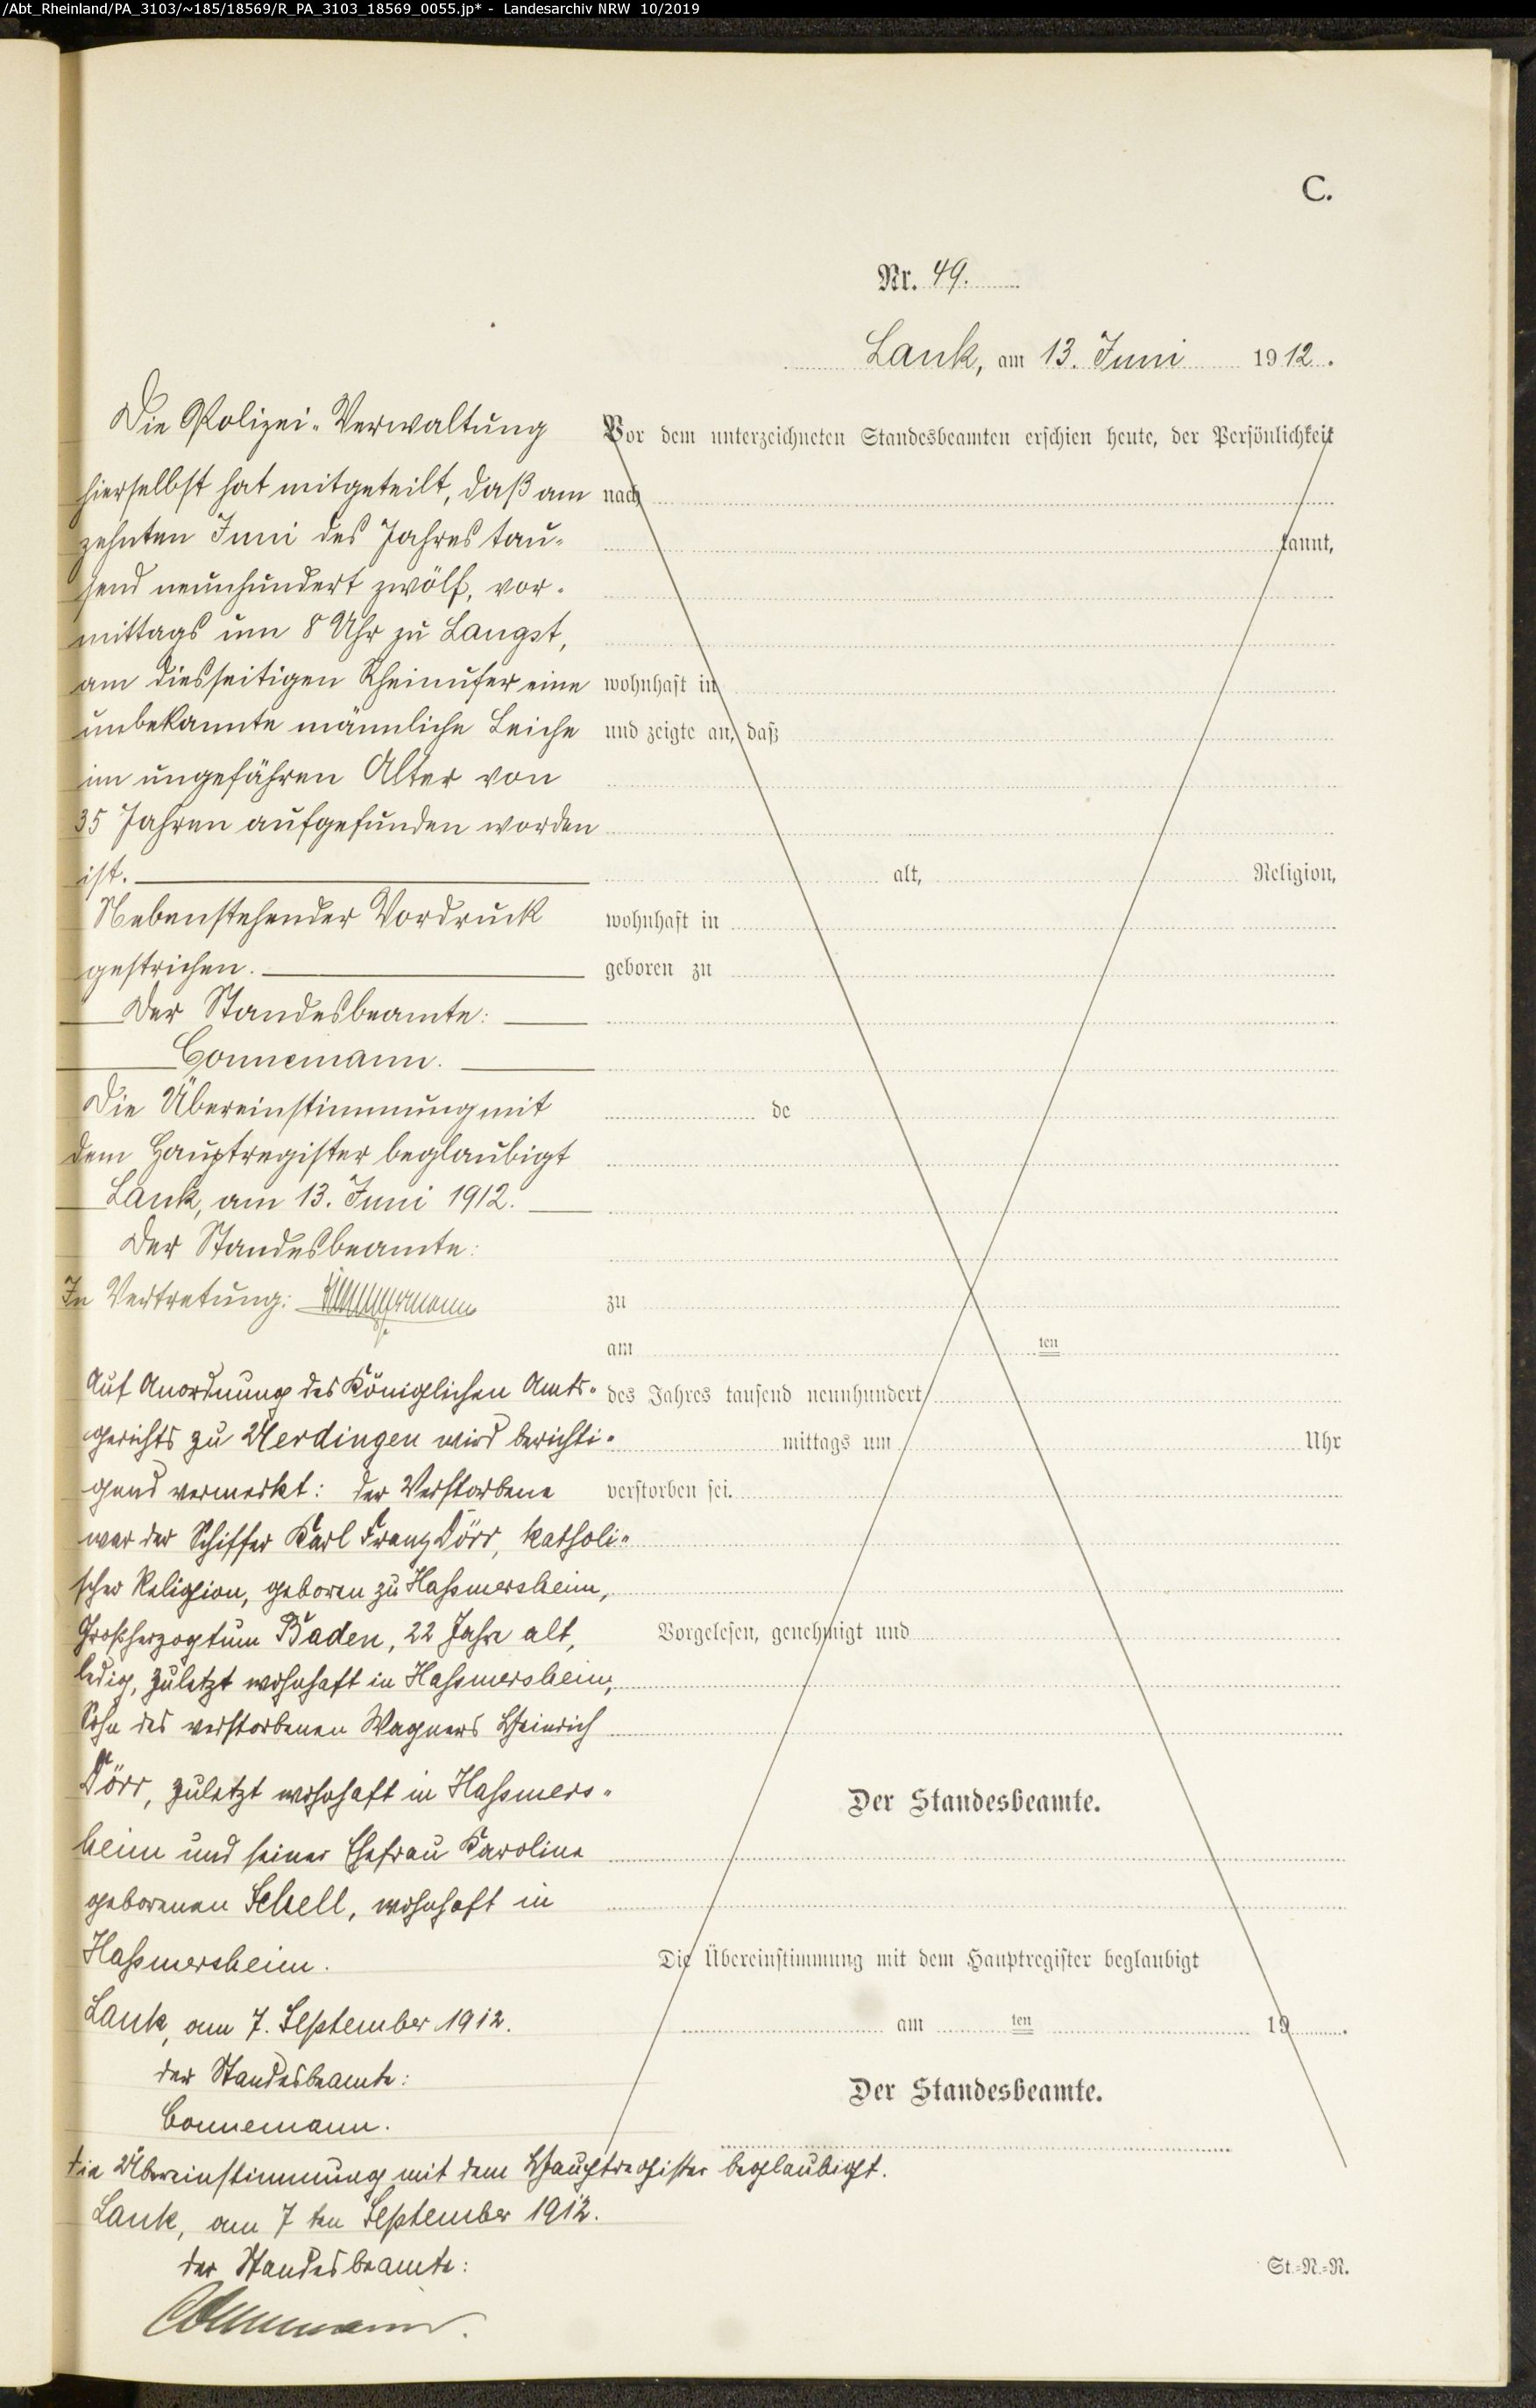 /Abt_Rheinland/PA_3103/~185/18569/R_PA_3103_18569_0055.jp* - Landesarchiv NRW 10/2019
C.
Nr. 49.
Lank, am 13. Juni 1912.
Die Polizei-Verwaltung
hierselbst hat mitgeteilt, daß am
zehnten Juni des Jahres tau-
send neunhundert zwölf, vor-
mittags um 8 Uhr zu Langst,
am diesseitigen Rheinufer eine
unbekannte männliche Leiche
im ungefähren Alter von
35 Jahren aufgefunden worden
ist.
Nebenstehender Vordruck
gestrichen.
Der Standesbeamte:
Connemann.
Die Übereinstimmung mit
dem Hauptregister beglaubigt
Lank, am 13. Juni 1912.
Der Standesbeamte:
In Vertretung:
Auf Anordnung des Königlichen Amts-
gerichts zu Uerdingen wird berichti-
gend vermerkt: der Verstorbene
war der Schiffer Karl Franz Dörr, katholi-
scher Religion, geboren zu Hassmersheim,
Großherzogtum Baden, 22 Jahre alt,
ledig, zuletzt wohnhaft in Hassmersheim,
Sohn des verstorbenen Wagners Heinrich
Dörr, zuletzt wohnhaft in Hassmers-
heim und seiner Ehefrau Karoline
geborenen Schell, wohnhaft in
Hassmersheim.
Lank, am 7. September 1912.
der Standesbeamte:
Connemann.
die Übereinstimmung mit dem Hauptregister beglaubigt.
Lank, am 7ten September 1912.
der Standesbeamte:
Connemann.
Vor dem unterzeichneten Standesbeamten erschien heute, der Persönlichkeit
nach
kannt,
wohnhaft in
und zeigte an, daß
alt, Religion,
wohnhaft in
geboren zu
de
zu
am ten
des Jahres tausend neunhundert
mittags um Uhr
verstorben sei.
Vorgelesen, genehmigt und
Der Standesbeamte.
Die Übereinstimmung mit dem Hauptregister beglaubigt
am ten 19 .
Der Standesbeamte.
St.-N.-R.